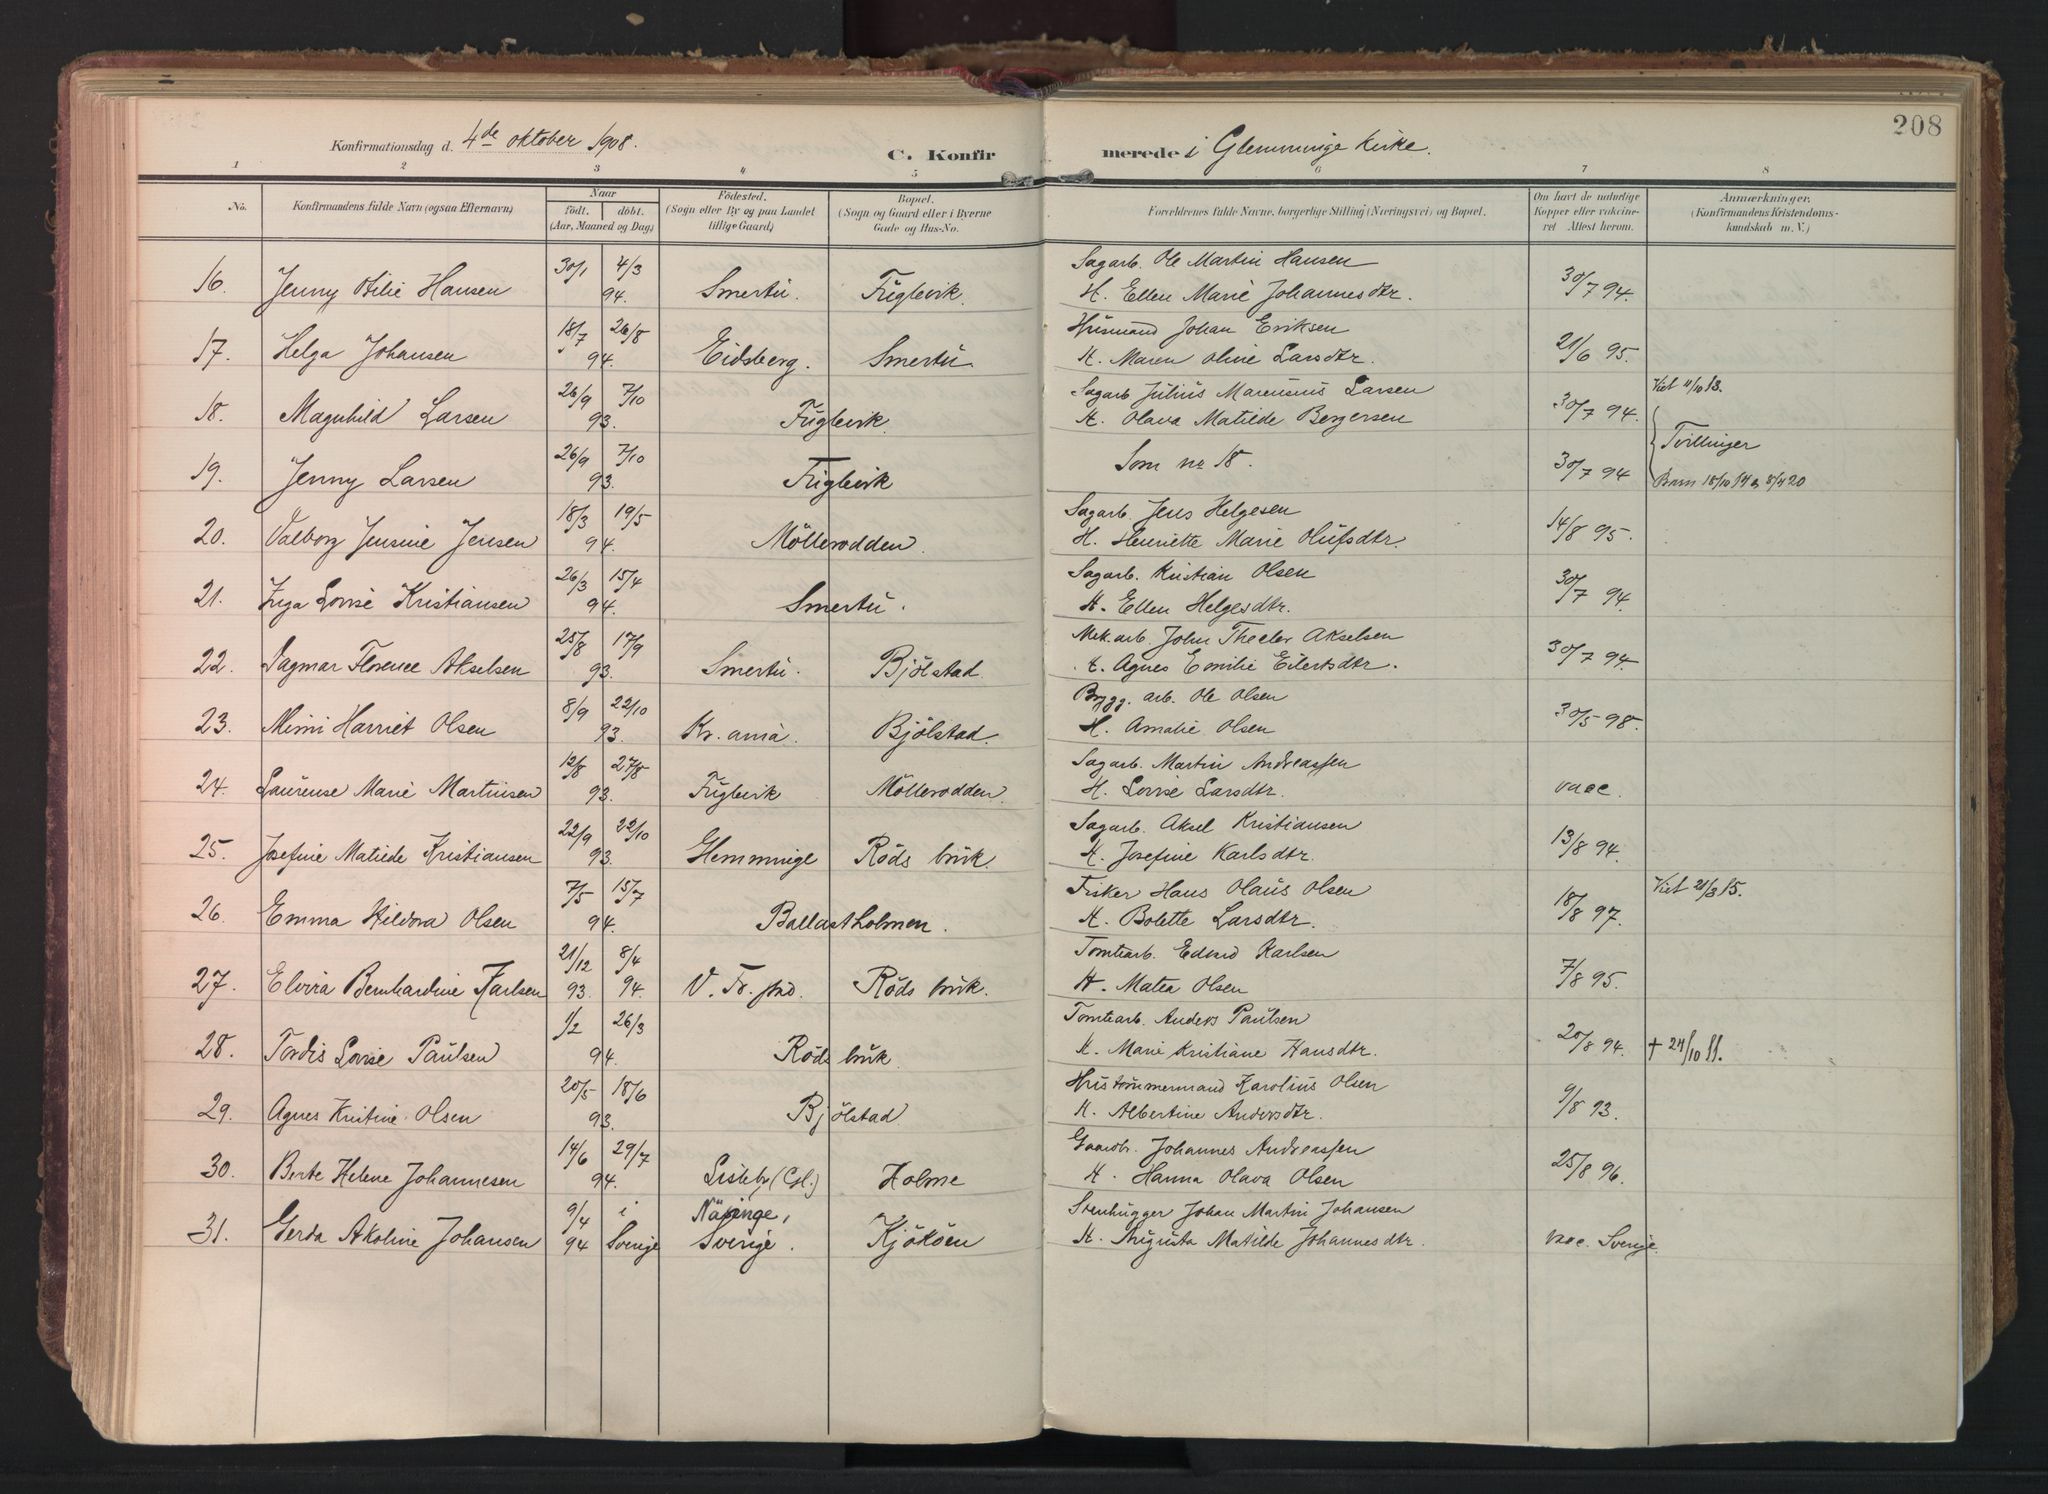 208
Konfirmationsdag d. 4de oktober 1908. C. Konfirmerede i Glemminge Kirke.
1 2 3 4 5 6 7 8
No. Konfirmandens fulde Navn (ogsaa Efternavn) Naar födt. döbt. (Aar, Maaned og Dag) Födested. (Sogn eller By og paa Landet tillige Gaard) Bopæl. (Sogn og Gaard eller i Byerne Gade og Hus-No. Forældrenes fulde Navne, borgerlige Stilling (Næringsvei) og Bopæl. Om havt de naturlige Kopper eller vakcineret Attest herom. Anmærkninger. (Konfirmandens Kristendomskundskab m. V.)
Sagarb. Ole Martin Hansen
16. Jenny Otilie Hansen 30/1 4/3 94. Smertu. Fuglevik. H. Ellen Marie Johannesdtr. 30/7 94.
Husmand Johan Eriksen
17. Helga Johansen 18/7 26/8 94. Eidsberg. Smertu. H. Maren Oline Larsdtr. 21/6 95.
Sagarb Julius Marensius Larsen Viet 11/10 13.
18. Magnhild Larsen 26/9 7/10 93. Fuglevik. H. Olava Matilde Bergersen 30/7 94.
Tvillinger
19. Jenny Larsen 26/9 7/10 93. Fuglevik Som nr 18. 30/7 94 Barn 18/10 14 & 8/4 20
Sagarb. Jens Helgesen
20. Valborg Jensine Jensen 18/3 19/5 94. Möllerodden. H. Henriette Marie Olufsdtr. 14/8 95.
Sagarb. Kristian Olsen
21. Inga Lovise Kristiansen 26/3 15/4 94. Smertu. H. Ellen Helgesdtr. 30/7 94.
Mek. arb. John Theelor Akselsen
22. Dagmar Florence Akselsen 25/8 17/9 93. Smertu. Bjölstad. H. Agnes Emilie Eilertsdtr. 30/7 94.
Brygg. arb. Ole Olsen
23. Mimi Harriet Olsen 8/9 22/10 93. Kr. ania. Bjölstad. H. Amalie Olsen 30/5 98.
Sagarb. Martin Andreassen
24. Laurense Marie Martinsen 12/8 27/8 93. Fuglevik Möllerodden. H. Lovise Larsdtr. vacc.
Sagarb. Aksel Kristiansen
25. Josefine Matilde Kristiansen 22/9 22/10 93. Glemminge Röds bruk. H. Josefine Karlsdtr. 13/8 94.
Fisker Hans Olaus Olsen Viet 21/3 15.
26. Emma Hildora Olsen 7/5 15/7 94. Ballastholmen. H. Bolette Larsdtr. 18/8 97.
Tomtearb. Edvard Karlsen
27. Elvira Bernhardine Karlsen 21/12 93. 8/4 94. V. Fr. stad. Röds bruk. H. Matea Olsen 7/8 95.
Tomtearb. Anders Paulsen
28. Tordis Lovise Paulsen 1/2 26/3 94. Röds bruk. H. Marie Kristiane Hansdtr. 20/8 94. † 24/10 11.
Hustömmermand Karolius Olsen
29. Agnes Kristine Olsen 20/5 18/6 93. Bjölstad H. Albertine Andersdtr. 9/8 93.
Gaardbr. Johannes Andreassen
30. Berte Helene Johannesen 14/6 29/7 94. Lisleby (Gl.) Holme H. Hanna Olava Olsen 25/8 96.
Stenhugger Johan Martin Johansen
31. Gerda Akoline Johansen 9/4 94 i Sverige Näsinge, Sverige. Kjököen H. Augusta Matilde Johannesdtr. vacc. Sverige.